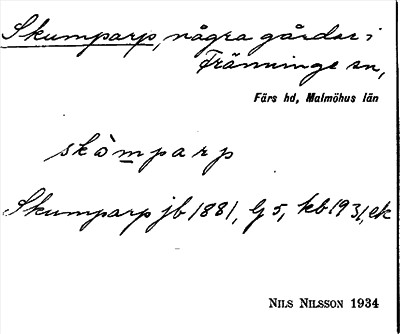 Skumparp, några gårdar i
Tränninge sn,
Färs hd, Malmöhus län
skòmparp
Skumparp jb 1881, G 5, kb 1931, ek
NILS NILSSON 1934